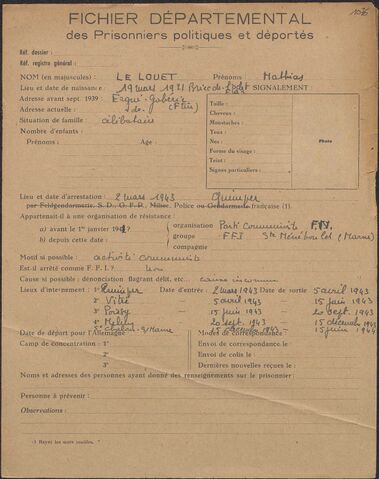 FICHIER DÉPARTEMENTAL
des Prisonniers politiques et déportés
Réf. dossier :
Réf. registre général :
NOM (en majuscules) : LE LOUET Prénoms : Mathias
Lieu et date de naissance : 19 mars 1921 SIGNALEMENT :
Adresse avant sept. 1939 : Ergué-Gabéric
Adresse actuelle : (Fin)
Situation de famille : célibataire
Nombre d'enfants :
Prénoms : Age :
Taille :
Cheveux :
Moustaches :
Yeux :
Nez :
Forme du visage :
Teint :
Signes particuliers :
Photo
Lieu et date d'arrestation : 2 mars 1943 Quimper
par Feldgendarmerie, S. D., G. F. P., Milice, Police ou Gendarmerie française (1).
Appartenait-il à une organisation de résistance :
a) avant le 1er janvier organisation Parti Communiste
b) depuis cette date : groupe FFI Ste Ménéhould (Marne)
compagnie
Motif si possible : activité communiste
Est-il arrêté comme F. F. I. ? non
Cause si possible : dénonciation, flagrant délit, etc... cause inconnue
Lieux d'internement : 1° Quimper Date d'entrée : 2 mars 1943 Date de sortie : 5 avril 1943
2° Vitré 5 avril 1943 15 juin 1943
3° 15 juin 1943 20 sept. 1943
4° 20 sept. 1943 15 décembre 1943
5° 15 décembre 1943 15 juin 1944
Date de départ pour l'Allemagne : Modes de correspondance :
Camp de concentration : 1° Envoi de correspondance le :
2° Envoi de colis le :
3° Dernières nouvelles reçues le :
Noms et adresses des personnes ayant donné des renseignements sur le prisonnier :
Personne à prévenir :
Observations :
1 Rayer les mots inutiles.